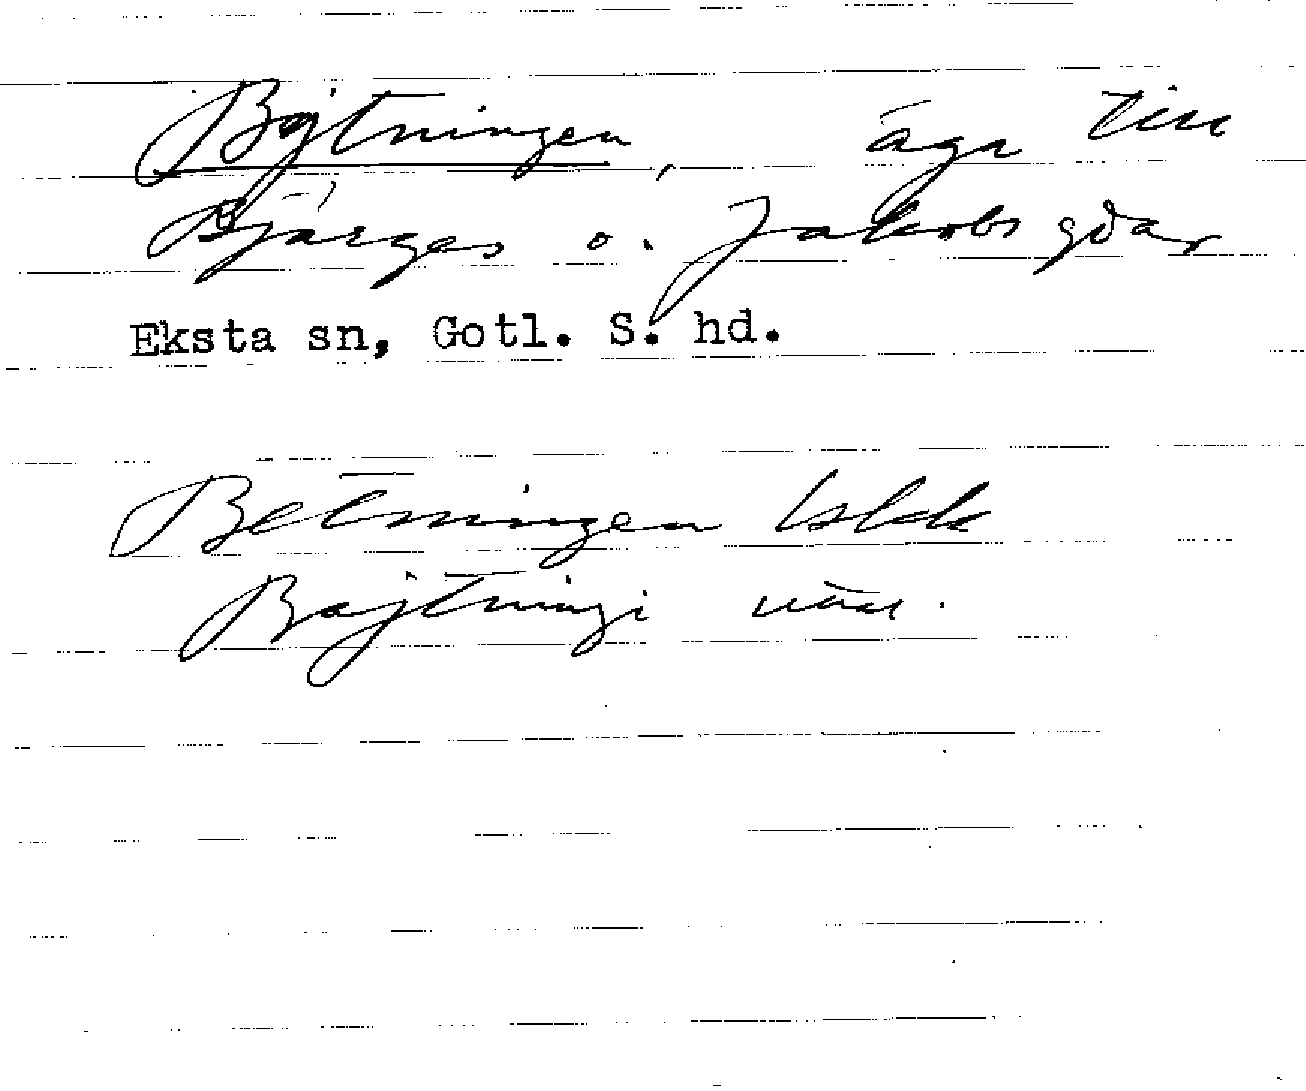 Bojtningen, äga till
Bjärges o. Jakobs gdar
Eksta sn, Gotl. S. hd.
Betningen
Bajtningi